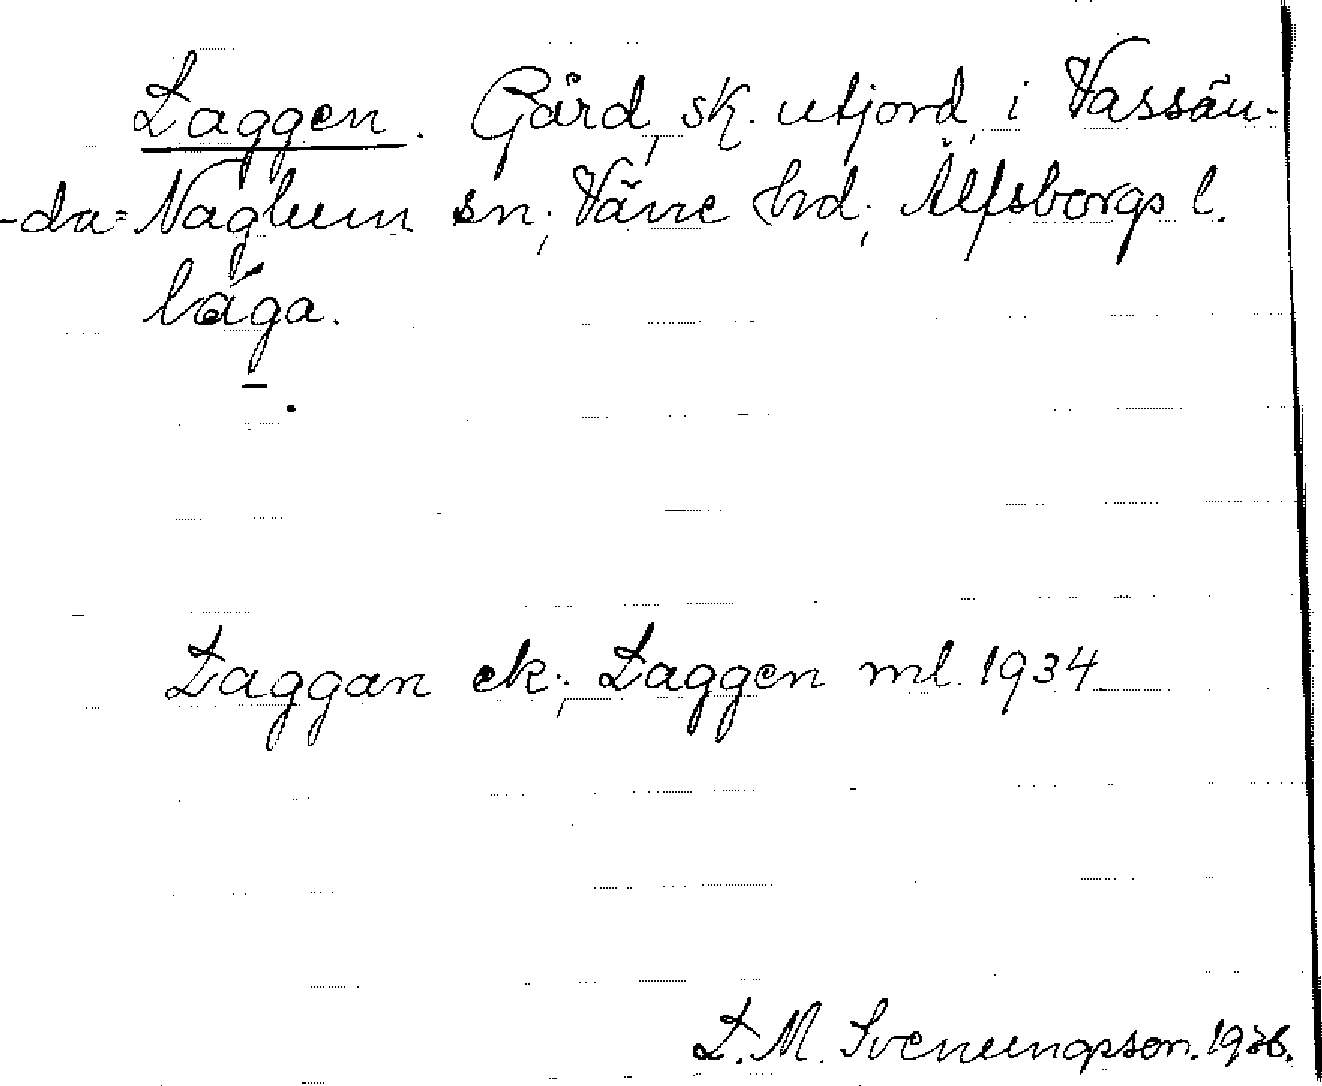 Laggen. Gård, sk. utjord, i Vassän-
-da=Naglum sn; Väne hd; Älfsborgs l.
låga.
Laggan ek.; Laggen ml. 1934
L. M. Svenungsson. 1936.